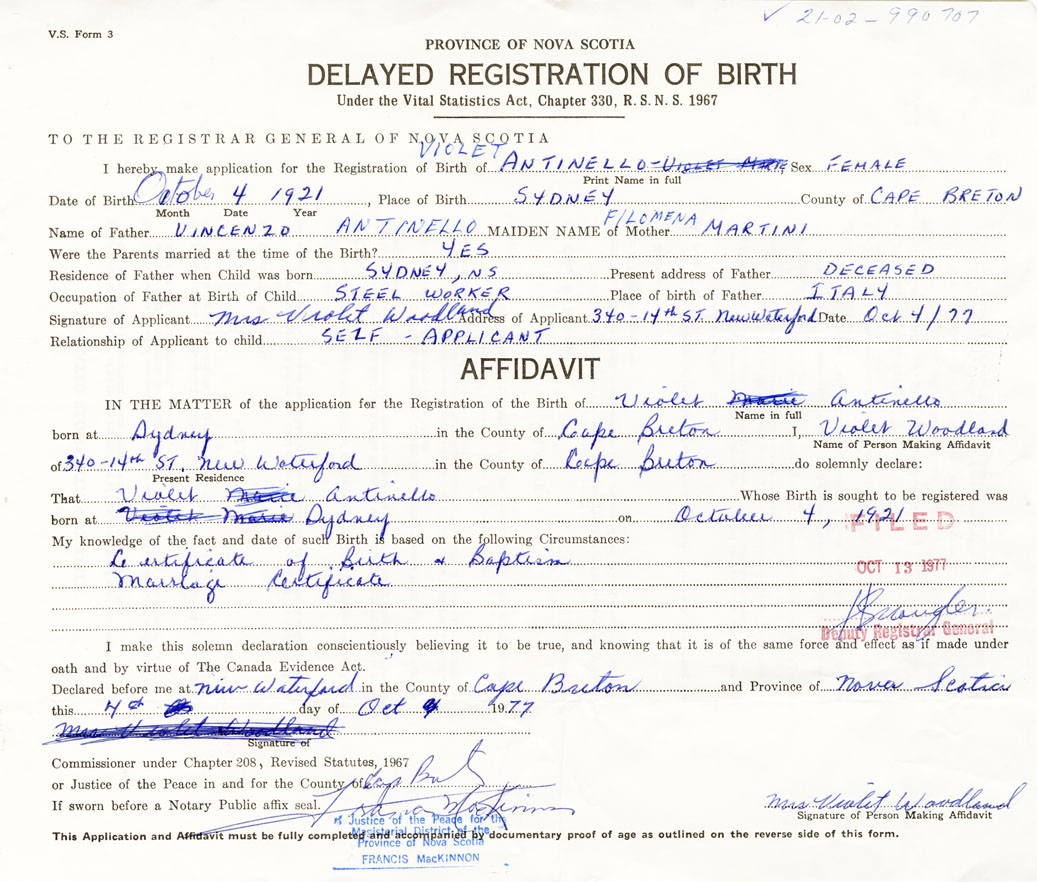 ✓ 21-02-990707
V.S. Form 3
PROVINCE OF NOVA SCOTIA
DELAYED REGISTRATION OF BIRTH
Under the Vital Statistics Act, Chapter 330, R.S.N.S. 1967
TO THE REGISTRAR GENERAL OF NOVA SCOTIA
VIOLET
I hereby make application for the Registration of Birth of ANTINELLO - VIOLET MARIE, Sex FEMALE
Print Name in full
Date of Birth October 4 1921, Place of Birth SYDNEY County of CAPE BRETON
Month Date Year
Name of Father VINCENZO ANTINELLO MAIDEN NAME of Mother FILOMENA MARTINI
Were the Parents married at the time of the Birth? YES
Residence of Father when Child was born SYDNEY, NS Present address of Father DECEASED
Occupation of Father at Birth of Child STEEL WORKER Place of birth of Father ITALY
Signature of Applicant Mrs Violet Woodland Address of Applicant 340-14th ST. New Waterford Date Oct 4/77
Relationship of Applicant to child SELF - APPLICANT
AFFIDAVIT
IN THE MATTER of the application for the Registration of the Birth of Violet Marie Antinello
Name in full
born at Sydney in the County of Cape Breton I, Violet Woodland
Name of Person Making Affidavit
of 340-14th ST, New Waterford in the County of Cape Breton do solemnly declare:
Present Residence
That Violet Marie Antinello Whose Birth is sought to be registered was
born at Violet Marie Sydney on October 4, 1921
FILED
My knowledge of the fact and date of such Birth is based on the following Circumstances:
Certificate of Birth & Baptism
OCT 13 1977
Marriage Certificate
Deputy Registrar General
I make this solemn declaration conscientiously believing it to be true, and knowing that it is of the same force and effect as if made under
oath and by virtue of The Canada Evidence Act.
Declared before me at New Waterford in the County of Cape Breton and Province of Nova Scotia
this 4th day of Oct 1977
Mrs Violet Woodland
Signature of
Commissioner under Chapter 208, Revised Statutes, 1967
or Justice of the Peace in and for the County of Cape Breton
If sworn before a Notary Public affix seal.
Mrs Violet Woodland
Signature of Person Making Affidavit
A Justice of the Peace for the
Magisterial District of the
Province of Nova Scotia
FRANCIS MacKINNON
This Application and Affidavit must be fully completed and accompanied by documentary proof of age as outlined on the reverse side of this form.